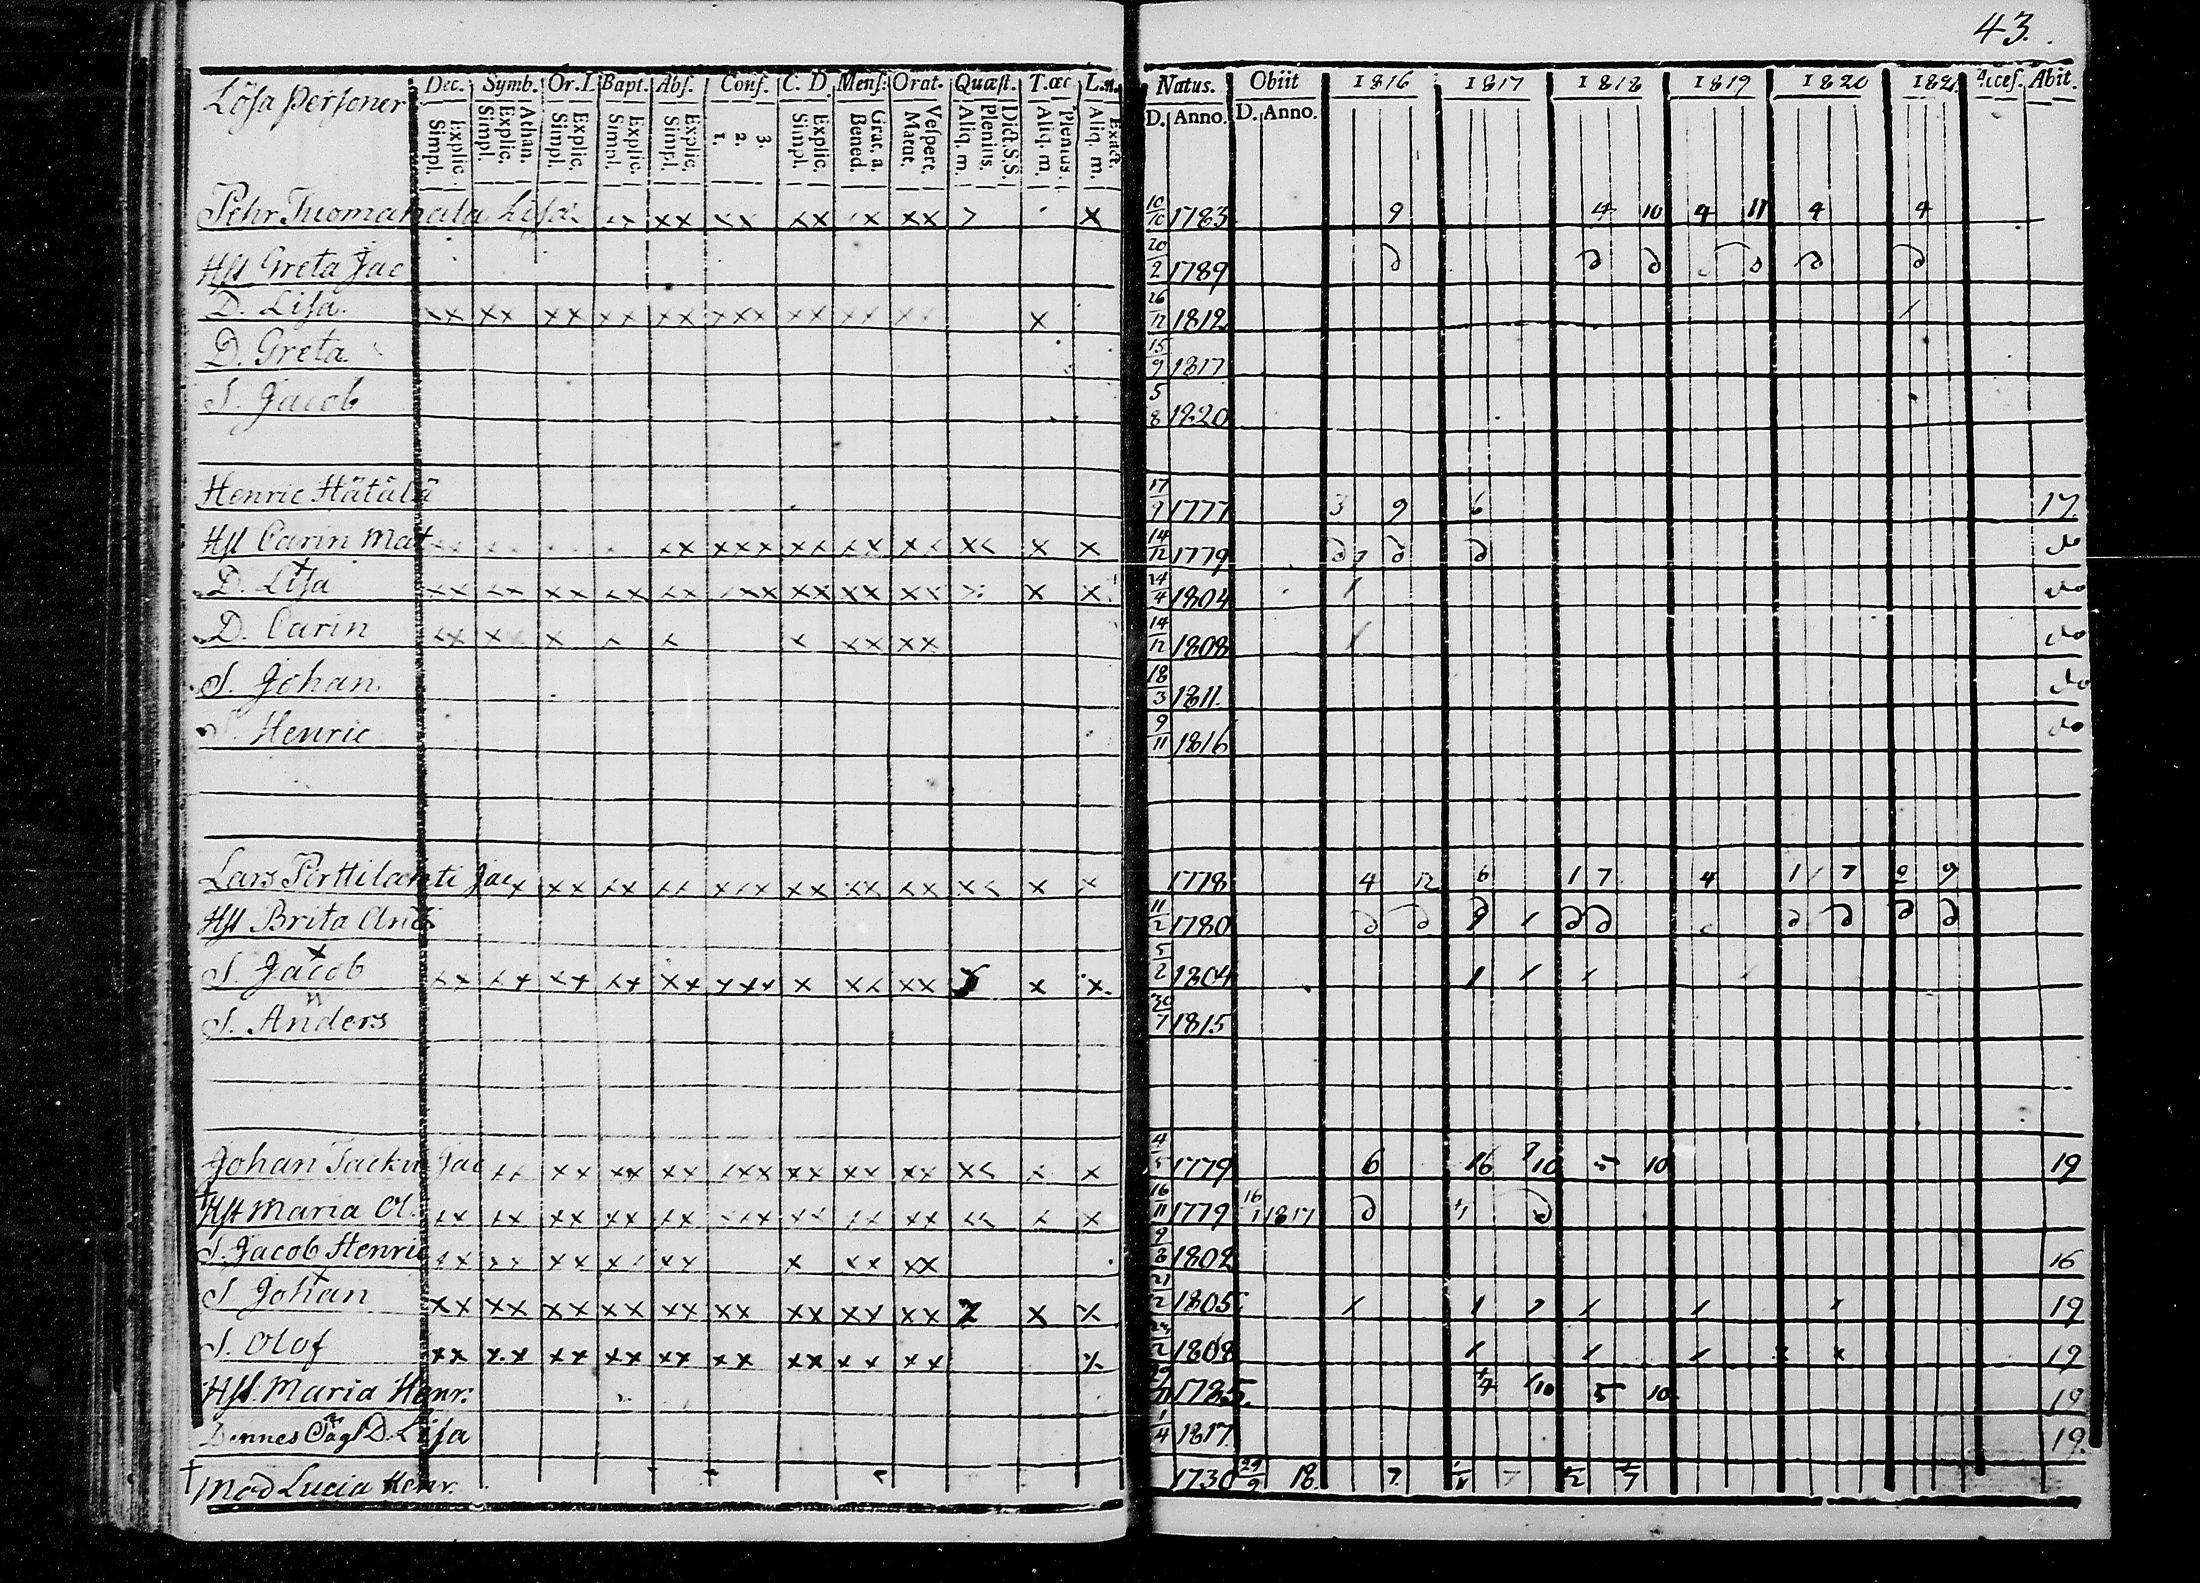 43.
Lösa Personer Dec. Symb. Or.D. Bapt. Abs. Conf. C. D. Mens. Orat. Quæst. T. œc L.n. Natus. Obiit 1816 1817 1818 1819 1820 182 Acces. Abit.
Explic. Simpl. Athan. Explic. Simpl. Explic. Simpl. Explic. Simpl. Explic. Simpl. 3. 2. 1. Explic. Simpl. Grat. a. Bened. Vespert. Matut. Dict. S.S. Plenius. Aliq. m. Plenius. Aliq. m. Exact. Aliq. m. D. Anno. D. Anno.
Pehr Tuomanala xx xx xx xx x xx x 10/10 1783 9 4 10 4 11 4 4
Hst Greta Jac 20/2 1789
D. Lisa xx xx xx xx xx xxx xx xx xx x 26/12 1812
D. Greta 15/9 1817
S. Jacob 5/8 1820
Henric Hätälä 17/9 1777 3 9 6 17
Hst Carin Mat xx xxx xx xx xx xx x x 14/12 1779 do
D. Lisa xx xx xx xx xx xxx xx xx xx x x 24/4 1804 do
D. Carin xx x x x x x xx xx 14/12 1808 do
S. Johan 18/3 1811 do
S. Henric 9/11 1816 do
Lars Perttilanti Jac x xx xx xx xxx xx xx xx xx x x 1778 4 12 6 1 7 4 1 7 9
Hst Brita And 11/2 1780
S. Jacob xx xx xx xx xx xxx x xx xx x x 5/2 1804
S. Anders 30/7 1815
Johan Jac xx xx xx xx xxx xx xx xx xx x x 4/5 1779 6 10 5 10 19
† Hst Maria Ol. xx xx xx xx xx xxx xx xx xx xx x x 16/11 1779 16/1 1817
S. Jacob Henric xx xx xx xx xx x xx xx 1802 16
S. Johan xx xx xx xx xx xx xx xx xx x x 21/2 1805 19
S. Olof xx xx xx xx xx xx xx xx xx x 1808 19
Hst. Maria Henr. 1785. 5 10 19
Dennes D. Lisa 1/4 1817 19.
† Mod Lucia Henr. 1730 29/9 18 7